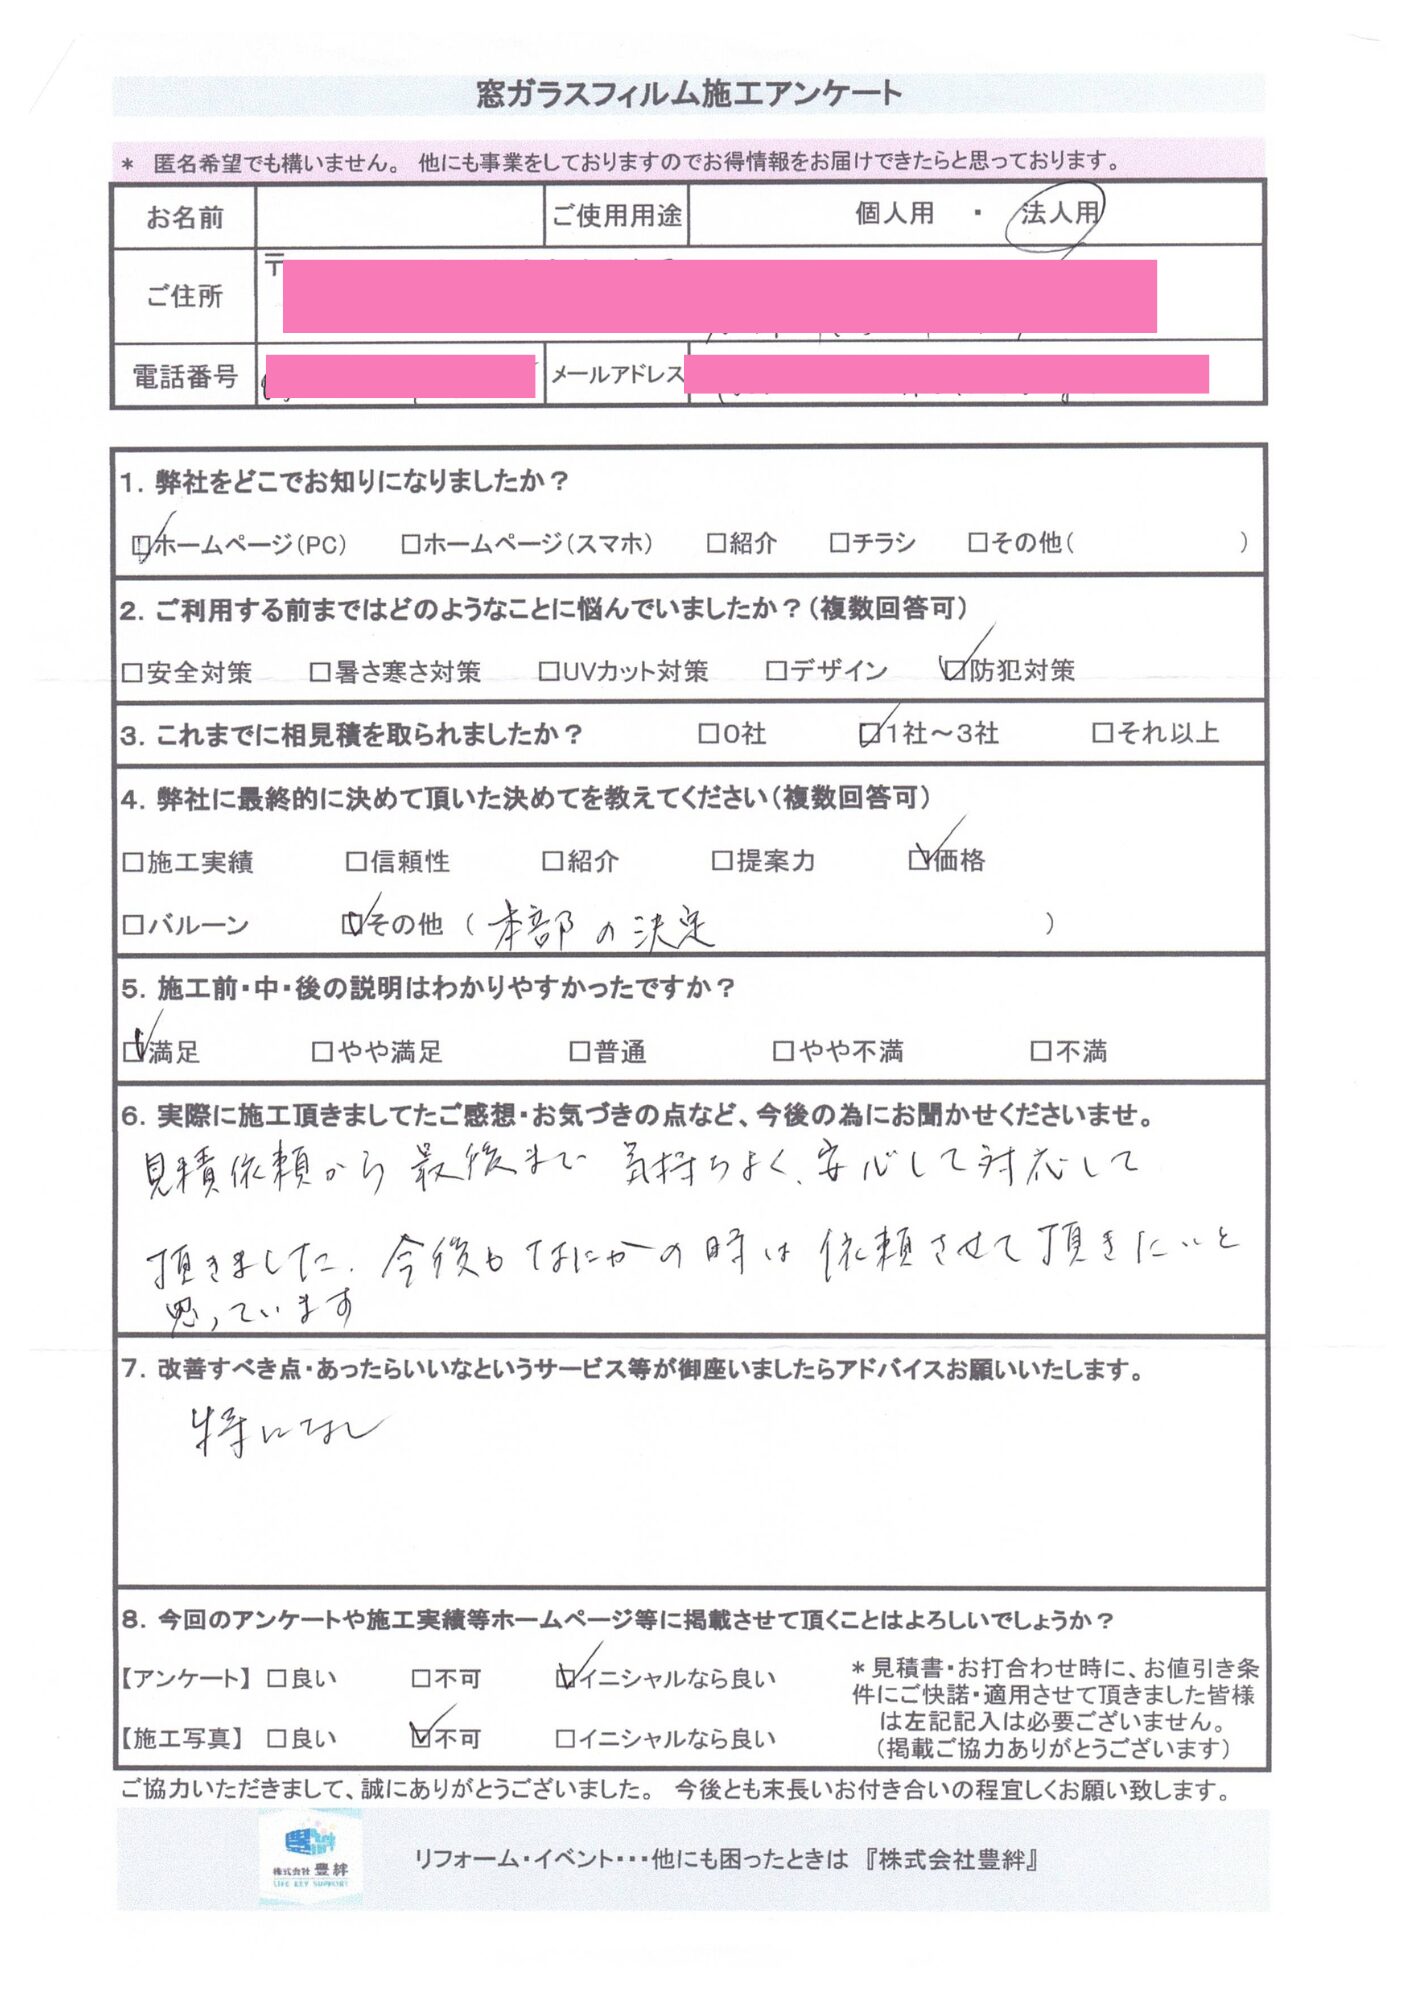 窓ガラスフィルム施工アンケート
* 匿名希望でも構いません。 他にも事業をしておりますのでお得情報をお届けできたらと思っております。
お名前 ご使用用途 個人用 ・ 法人用
ご住所 〒
電話番号 メールアドレス
1. 弊社をどこでお知りになりましたか？
☑ホームページ(PC) □ホームページ(スマホ) □紹介 □チラシ □その他( )
2. ご利用する前まではどのようなことに悩んでいましたか？(複数回答可)
□安全対策 □暑さ寒さ対策 □UVカット対策 □デザイン ☑防犯対策
3. これまでに相見積を取られましたか？ □0社 ☑1社～3社 □それ以上
4. 弊社に最終的に決めて頂いた決めてを教えてください(複数回答可)
□施工実績 □信頼性 □紹介 □提案力 ☑価格
□バルーン ☑その他 ( 本部の決定 )
5. 施工前・中・後の説明はわかりやすかったですか？
☑満足 □やや満足 □普通 □やや不満 □不満
6. 実際に施工頂きましてたご感想・お気づきの点など、今後の為にお聞かせくださいませ。
見積依頼から最後まで気持ちよく、安心して対応して
頂きました. 今後もなにかの時は依頼させて頂きたいと
思っています
7. 改善すべき点・あったらいいなというサービス等が御座いましたらアドバイスお願いいたします。
特になし
8. 今回のアンケートや施工実績等ホームページ等に掲載させて頂くことはよろしいでしょうか？
【アンケート】 □良い □不可 ☑イニシャルなら良い
【施工写真】 □良い ☑不可 □イニシャルなら良い
*見積書・お打合わせ時に、お値引き条
件にご快諾・適用させて頂きました皆様
は左記記入は必要ございません。
(掲載ご協力ありがとうございます)
ご協力いただきまして、誠にありがとうございました。 今後とも末長いお付き合いの程宜しくお願い致します。
株式会社 豊絆
LIFE KEY SUPPORT
リフォーム・イベント・・・他にも困ったときは 『株式会社豊絆』